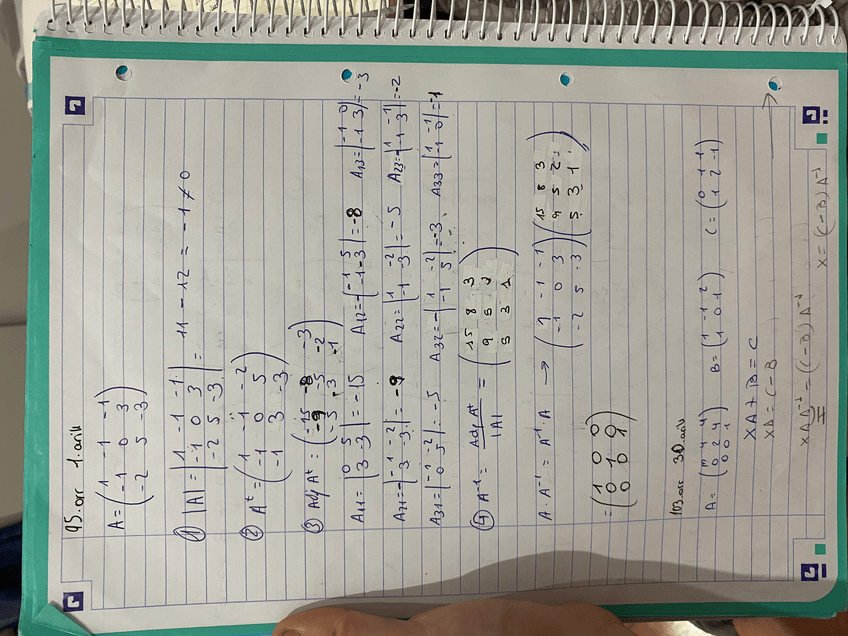 95.orr 1.arik
A = ( 1 -1 -1 / -1 0 3 / -2 5 -3 )
① |A| = | 1 -1 -1 / -1 0 3 / -2 5 -3 | = 11 - 12 = -1 ≠ 0
② Aᵗ = ( 1 -1 -2 / -1 0 5 / -1 3 -3 )
③ Adj Aᵗ = ( -15 -8 -3 / -9 -5 -2 / -5 -3 -1 )
A11 = | 0 5 / 3 -3 | = -15 A12 = -| -1 5 / -1 -3 | = -8 A13 = | -1 0 / -1 3 | = -3
A21 = -| -1 -2 / 3 -3 | = -9 A22 = | 1 -2 / -1 -3 | = -5 A23 = -| 1 -1 / -1 3 | = -2
A31 = | -1 -2 / 0 5 | = -5 A32 = -| 1 -2 / -1 5 | = -3 A33 = | 1 -1 / -1 0 | = -1
④ A⁻¹ = Adj Aᵗ / |A| = ( 15 8 3 / 9 5 2 / 5 3 1 )
A · A⁻¹ = A⁻¹ · A → ( 1 -1 -1 / -1 0 3 / -2 5 -3 ) ( 15 8 3 / 9 5 2 / 5 3 1 )
= ( 1 0 0 / 0 1 0 / 0 0 1 )
103.orr 30.arik
A = ( m 4 4 / 0 2 4 / 0 0 1 ) B = ( 1 -1 2 / 1 0 1 ) C = ( 0 1 -1 / 1 2 -1 )
XA + B = C
XA = C - B
XAA⁻¹ = (C - B) A⁻¹
I
X = (C - B) A⁻¹